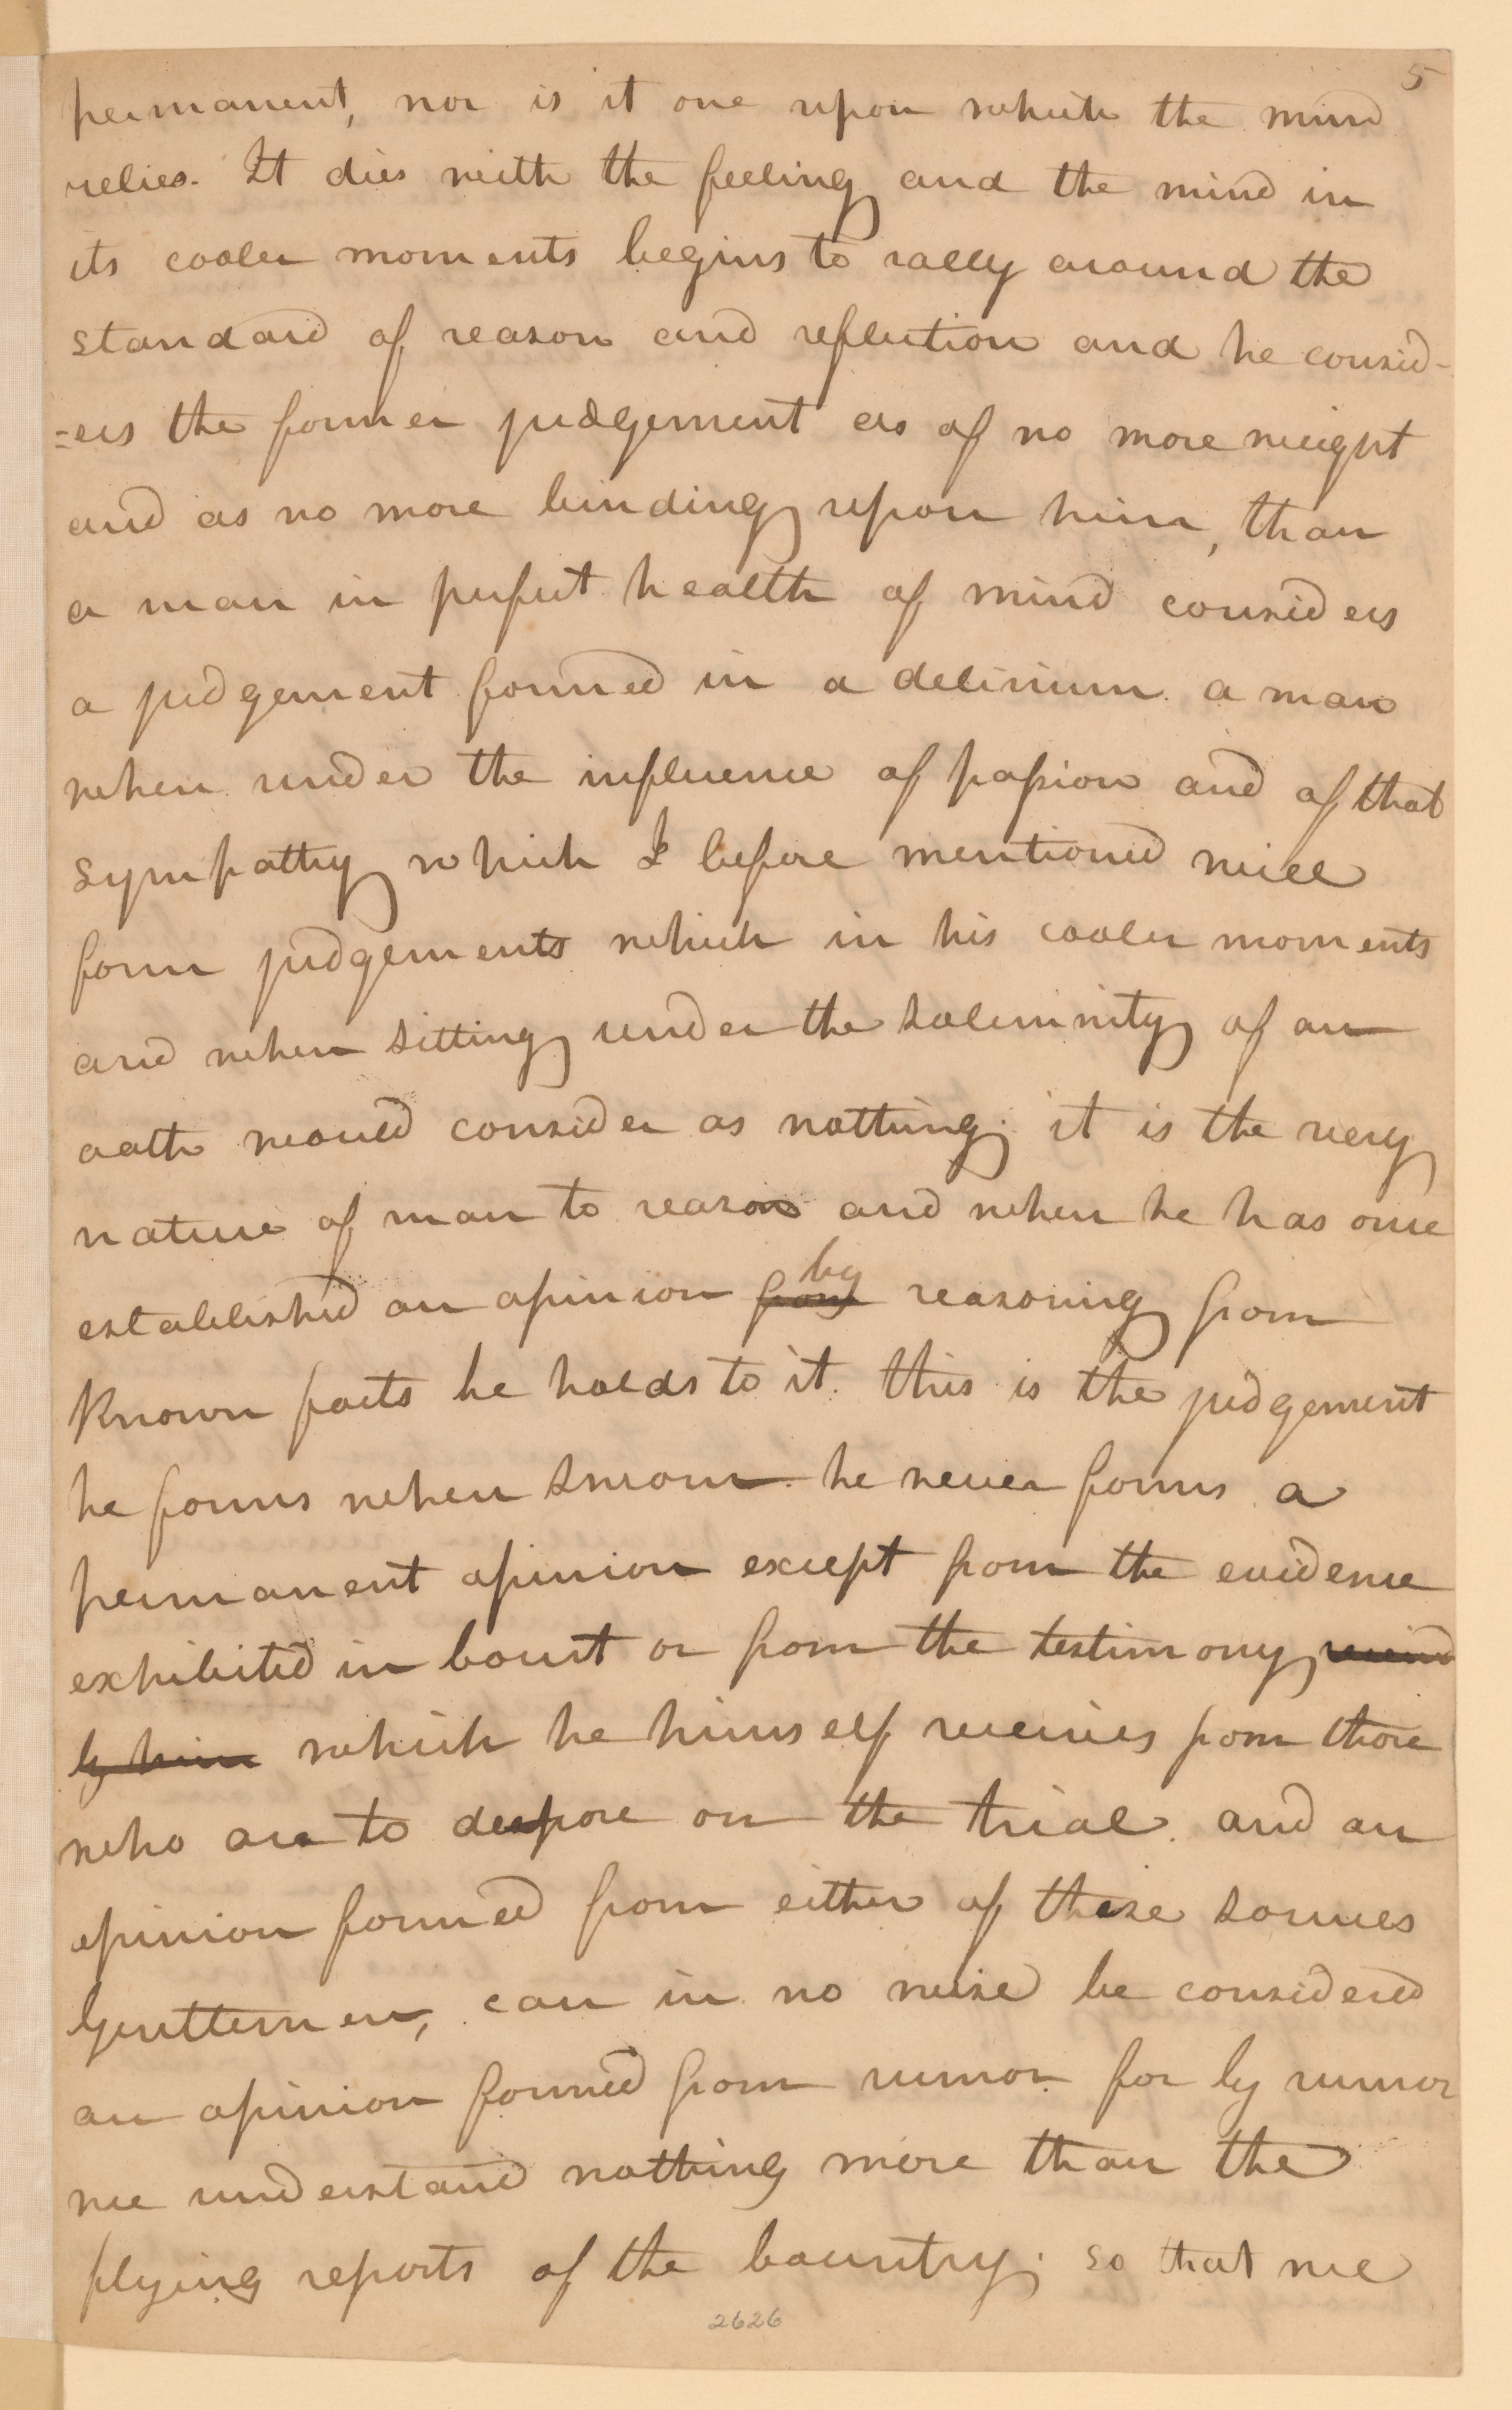 5
permanent, nor is it one upon which the mind
relies. It dies with the feeling and the mind in
its cooler moments begins to rally around the
standard of reason and reflection and he consid-
=ers the former judgement as of no more weight
and as no more binding upon him, than
a man in perfect health of mind considers
a judgement formed in a delirium. a man
when under the influence of passion and of that
sympathy which I before mentioned will
form judgements which in his cooler moments
and when sitting under the solemnity of an
oath would consider as nothing; it is the very
nature of man to reason and when he has once
by
established an opinion from reasoning from
Known facts he holds to it. this is the judgement
he forms when sworn. he never forms a
permanent opinion except from the evidence
exhibited in Court or from the testimony
by him which he himself receives from those
who are to depose on the trial. and an
opinion formed from either of these sources
Gentlemen, can in no wise be considered
an opinion formed from rumor. for by rumor
we understand nothing more than the
flying reports of the Country; so that we
2626